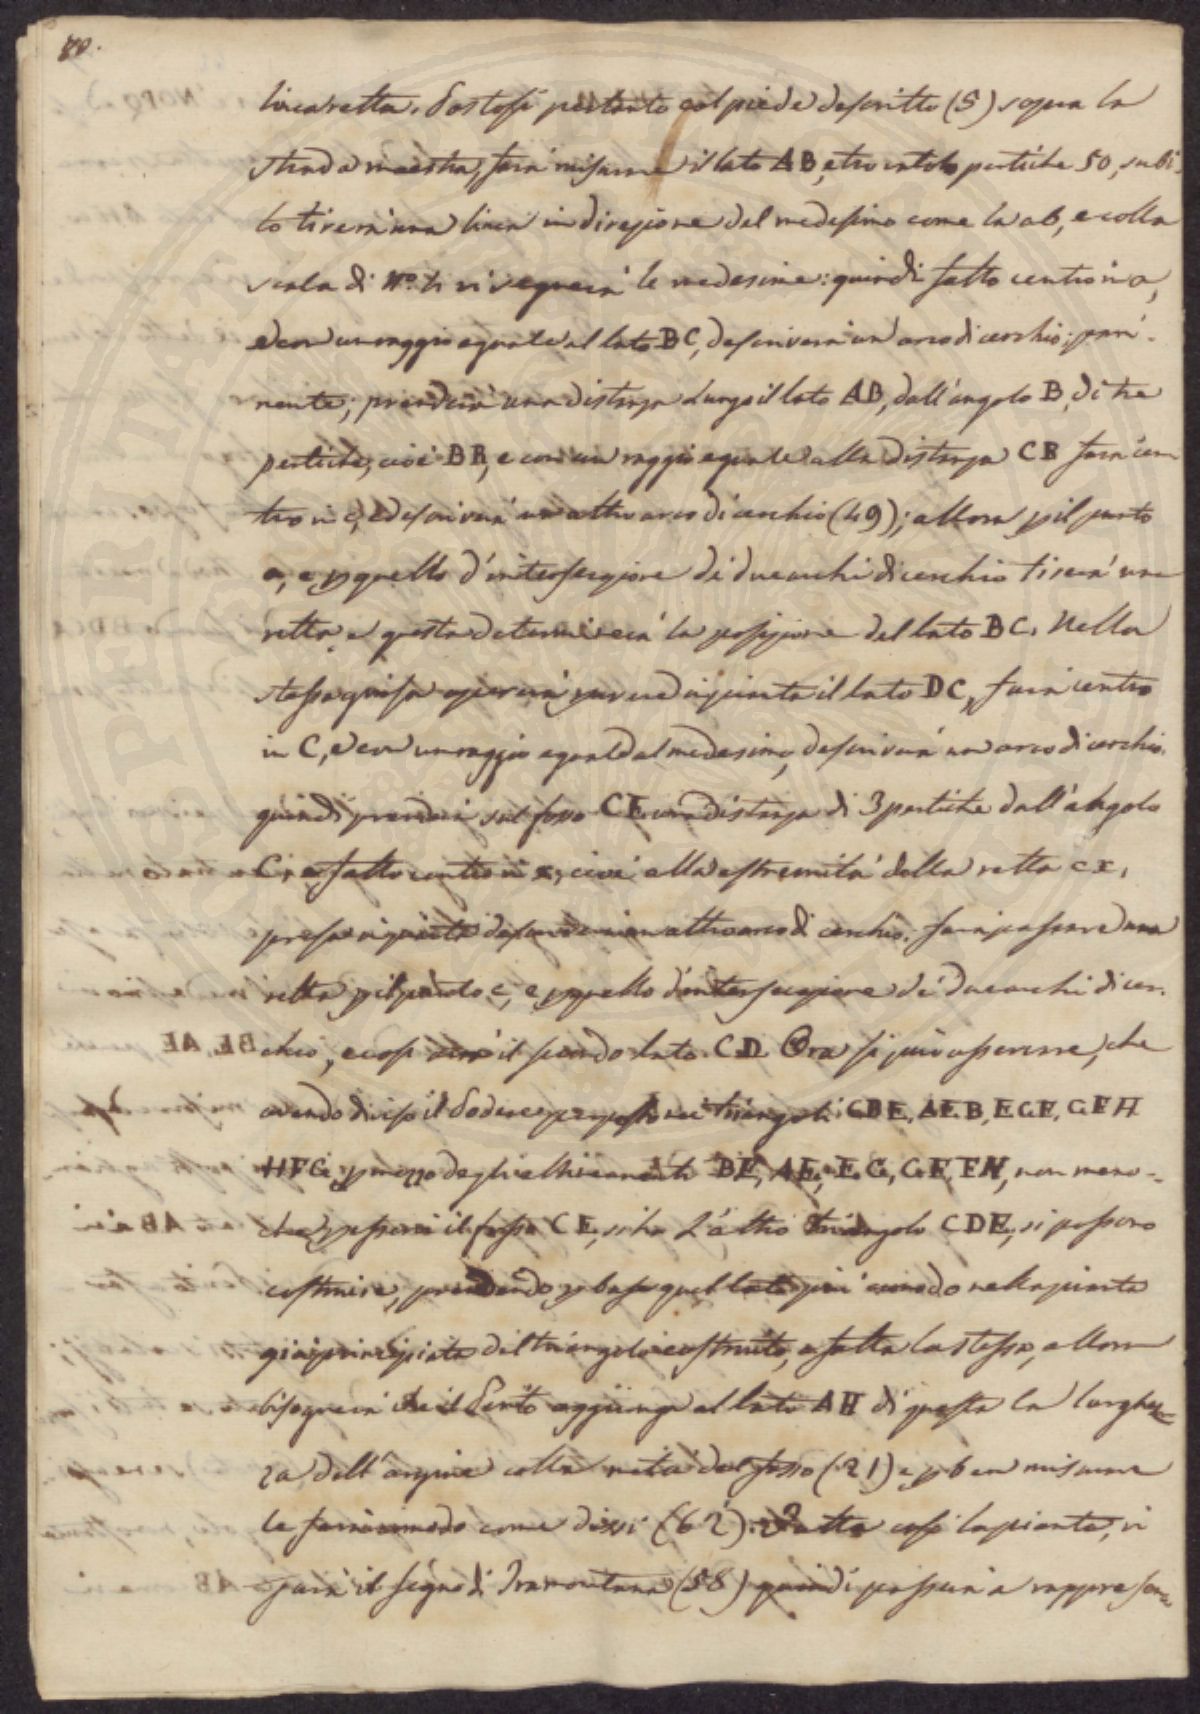 80.
linea retta. Postosi pertanto col piede descritto (5) sopra la
strada maestra, farà misurare il lato AB, e trovatolo pertiche 50, subi-
to tirerà una linea in direzione del medesimo come la ab, e colla
scala di N.º vi segnerà le medesime: quindi fatto centro in a,
ed con un raggio eguale al lato BC, descriverà un arco di cerchio; pari-
mente, prenderà una distanza lungo il lato AB, dall'angolo B, di tre
pertiche, cioè BR, e con un raggio eguale alla distanza CR farà cen-
tro in c, e descriverà un altro arco di cerchio (49); allora p il punto
a, e p quello d'intersezione dei due archi di cerchio tirerà una
retta e questa determinerà la posizione del lato BC. Nella
stessa guisa opererà p avere in pianta il lato DC, farà centro
in C, e con un raggio eguale al medesimo, descriverà un arco di cerchio.
quindi prenderà sul fosso CE una distanza di 3 pertiche dall'angolo
C, e fatto centro in x, cioè alla estremità della retta cx,
presa in pianta descriverà un altro arco di cerchio: farà passare una
retta p il punto c, e p quello d'intersezione de' due archi di cer-
chio, e così avrà il secondo lato CD. Ora si può osservare, che
avendo diviso il Podere proposto nei triangoli CBE, AEB, EGE, GFH
HFG p mezzo degli allineamenti BE, AE, EG, GF, FH, non meno-
che p esservi il fosso CE, si ha l'altro triangolo CDE, si possono
costruire, prendendo p base quel lato più comodo nella pianta
già principiata del triangolo costruito, e fatta la stessa, allora
bisognerà che il Perito aggiunga al lato AH di questa la larghez-
za dell'argine colla metà del fosso (21) e p ben misurar-
le farà in modo come dissi (62). Fatta così la pianta, vi
farà il segno di Tramontana (58) quindi passerà a rappresen-